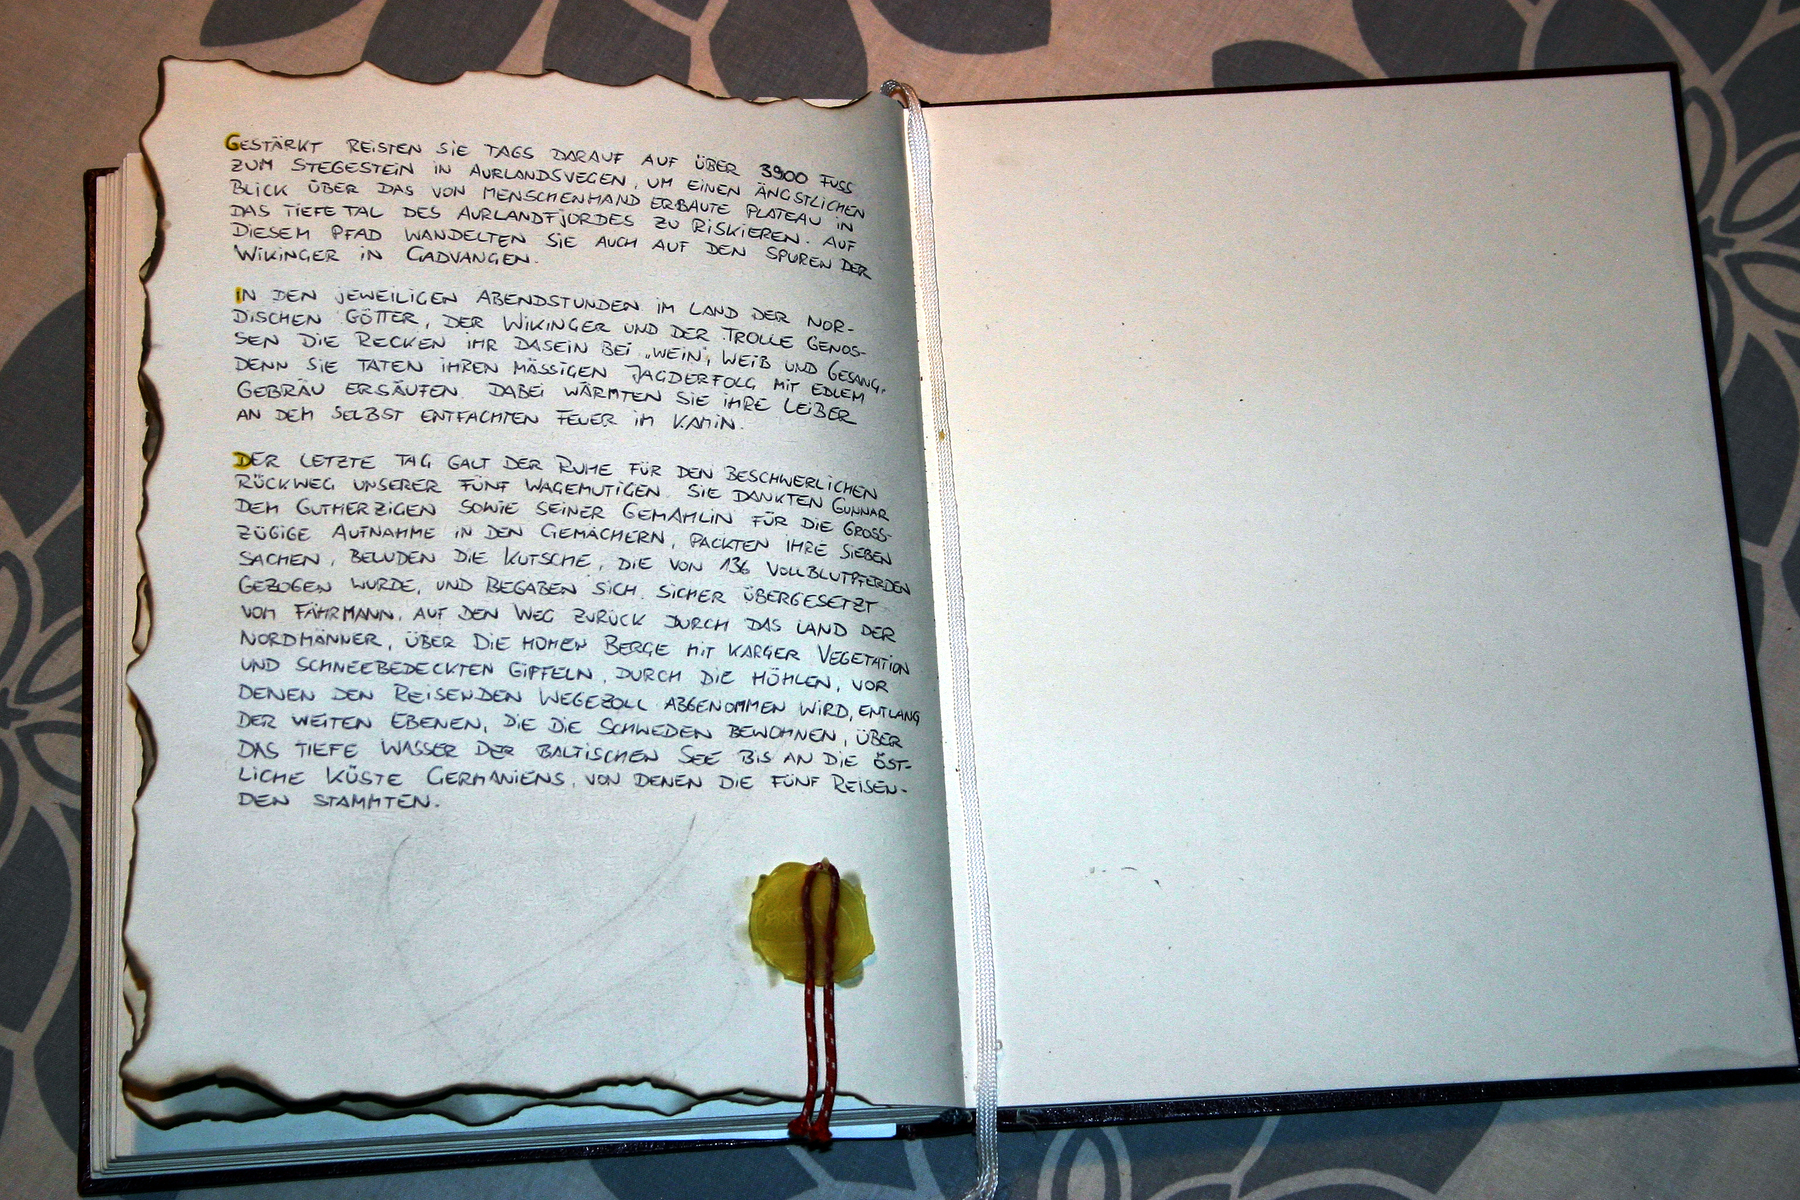 GESTÄRKT REISTEN SIE TAGS DARAUF AUF ÜBER 3900 FUSS
ZUM STEGESTEIN IN AURLANDSVEGEN, UM EINEN ÄNGSTLICHEN
BLICK ÜBER DAS VON MENSCHENHAND ERBAUTE PLATEAU IN
DAS TIEFE TAL DES AURLANDFJORDES ZU RISKIEREN. AUF
DIESEM PFAD WANDELTEN SIE AUCH AUF DEN SPUREN DER
WIKINGER IN GADVANGEN.
IN DEN JEWEILIGEN ABENDSTUNDEN IM LAND DER NOR-
DISCHEN GÖTTER, DER WIKINGER UND DER TROLLE GENOS-
SEN DIE RECKEN IHR DASEIN BEI „WEIN", WEIB UND GESANG,
DENN SIE TATEN IHREN MÄSSIGEN JAGDERFOLG MIT EDLEM
GEBRÄU ERSÄUFEN. DABEI WÄRMTEN SIE IHRE LEIBER
AN DEM SELBST ENTFACHTEN FEUER IM KAMIN.
DER LETZTE TAG GALT DER RUHE FÜR DEN BESCHWERLICHEN
RÜCKWEG UNSERER FÜNF WAGEMUTIGEN. SIE DANKTEN GUNNAR
DEM GUTHERZIGEN SOWIE SEINER GEMAHLIN FÜR DIE GROSS-
ZÜGIGE AUFNAHME IN DEN GEMÄCHERN, PACKTEN IHRE SIEBEN
SACHEN, BELUDEN DIE KUTSCHE, DIE VON 136 VOLLBLUTPFERDEN
GEZOGEN WURDE, UND BEGABEN SICH, SICHER ÜBERGESETZT
VOM FÄHRMANN, AUF DEN WEG ZURÜCK DURCH DAS LAND DER
NORDMÄNNER, ÜBER DIE HOHEN BERGE MIT KARGER VEGETATION
UND SCHNEEBEDECKTEN GIPFELN, DURCH DIE HÖHLEN, VOR
DENEN DEN REISENDEN WEGEZOLL ABGENOMMEN WIRD, ENTLANG
DER WEITEN EBENEN, DIE DIE SCHWEDEN BEWOHNEN, ÜBER
DAS TIEFE WASSER DER BALTISCHEN SEE BIS AN DIE ÖST-
LICHE KÜSTE GERMANIENS, VON DENEN DIE FÜNF REISEN-
DEN STAMMTEN.